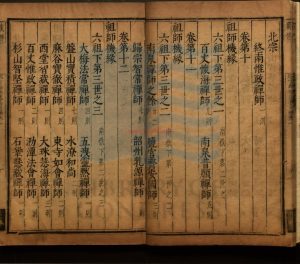 北宗
終南惟政禪師
卷第十
祖師機緣
六祖下第三世之一
百丈懷海禪師
南泉普願禪師
卷第十一
祖師機緣
六祖下第三世之二
南泉禪師之餘
歸宗智常禪師
卷第十二
祖師機緣
六祖下第三世之三
大梅法常禪師
五洩靈默禪師
盤山寶積禪師
水潦和尚
麻谷寶徹禪師
東寺如會禪師
西堂智藏禪師
大珠慧海禪師
百丈惟政禪師
泐潭法會禪師
杉山智堅禪師
石鞏慧藏禪師